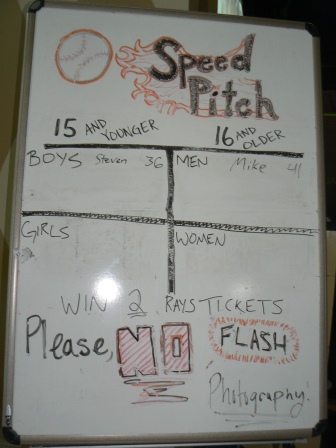 Speed
Pitch
15 AND YOUNGER
16 AND OLDER
BOYS Steven 36
MEN Mike 41
GIRLS
WOMEN
WIN 2 RAYS TICKETS
Please, NO FLASH
Photography!